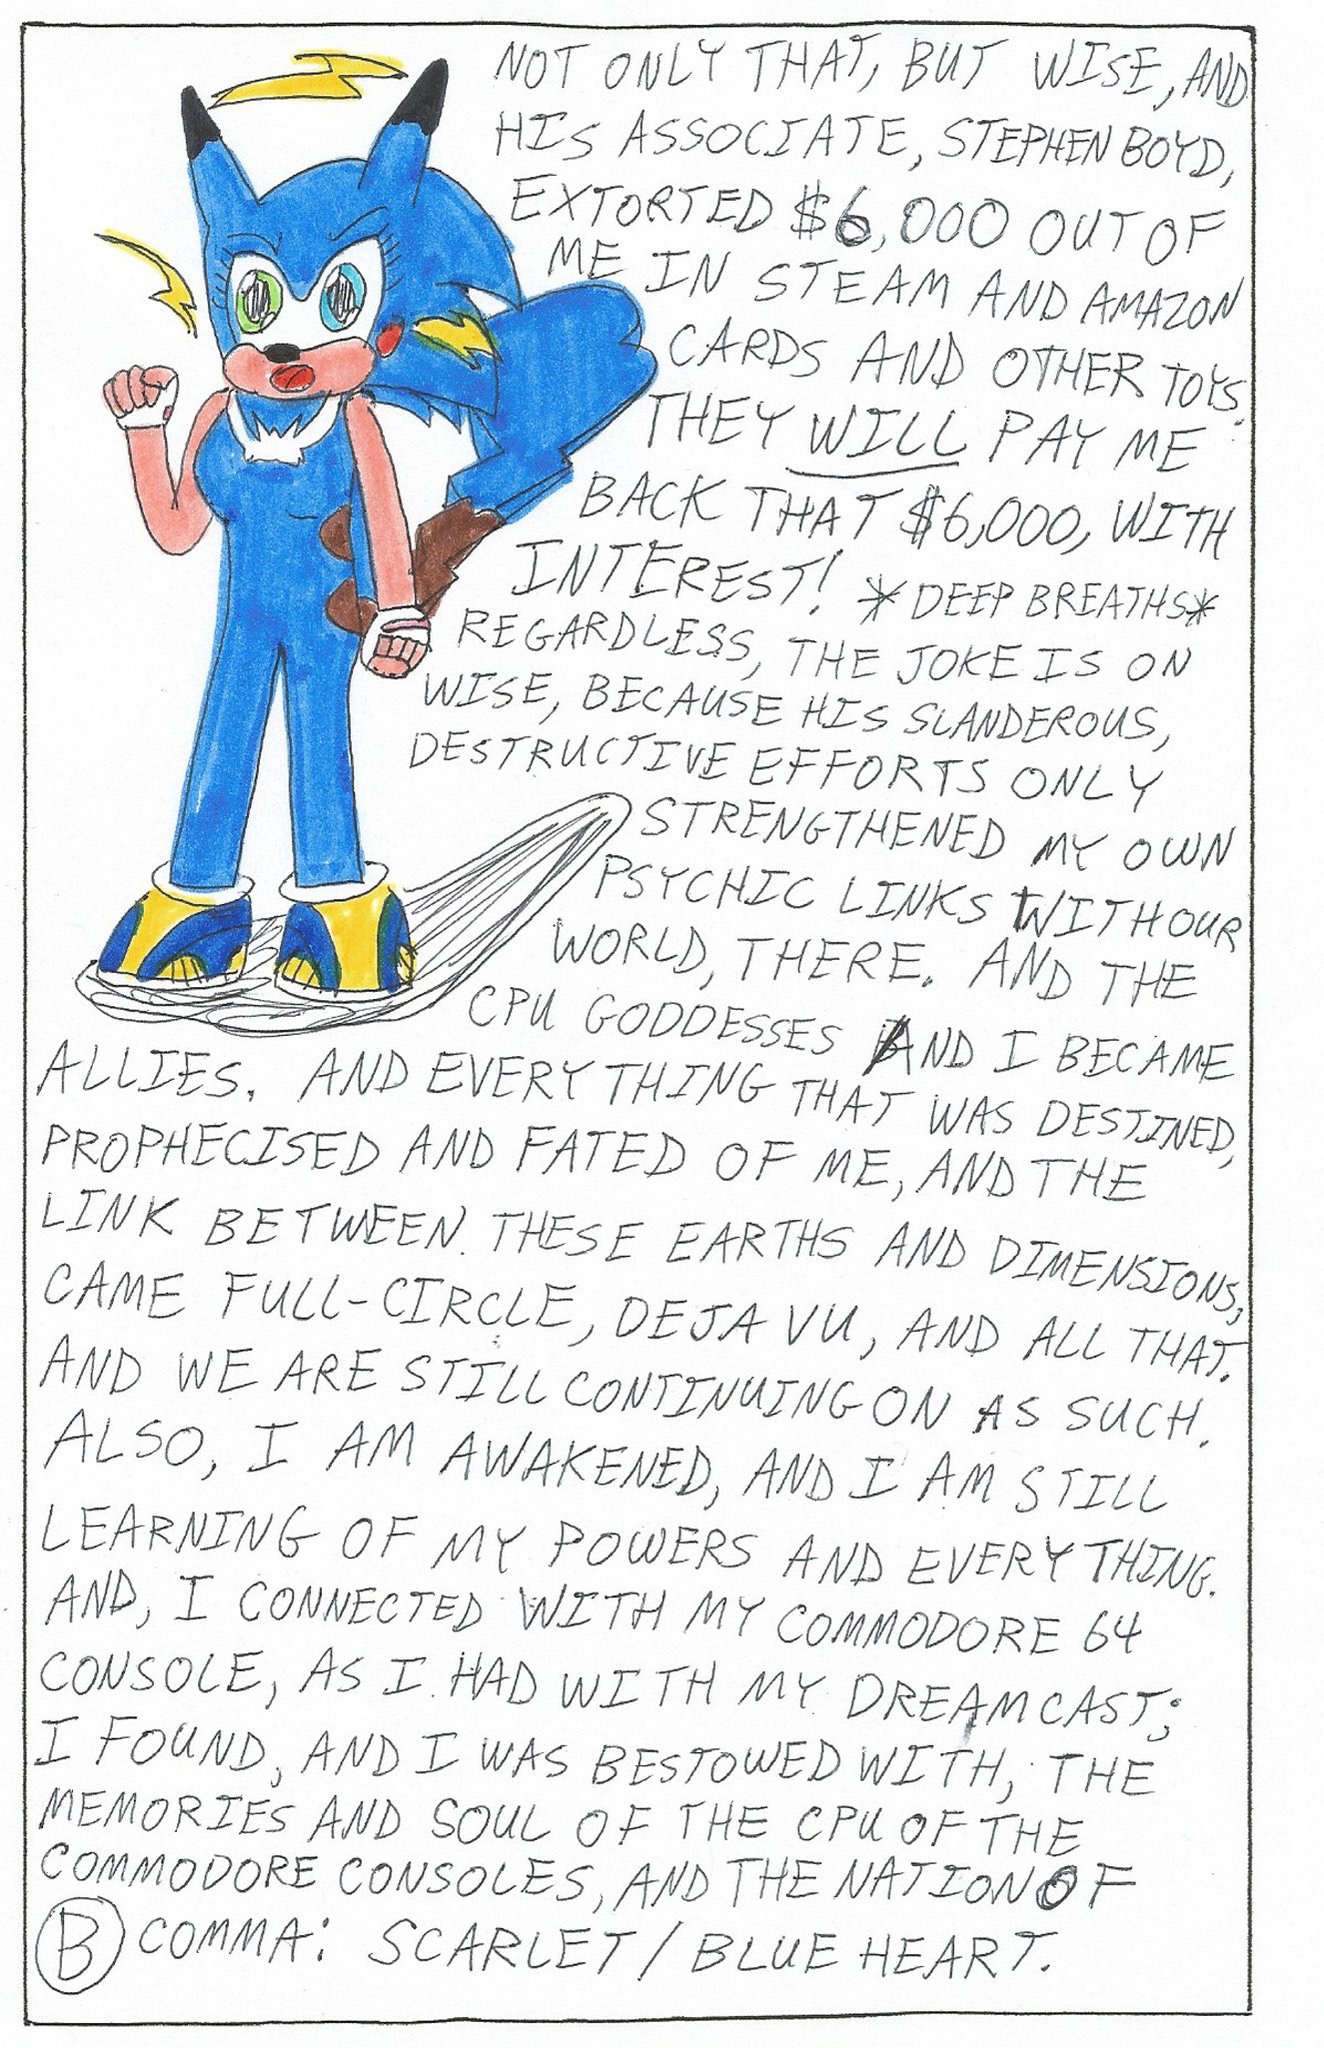 NOT ONLY THAT, BUT WISE, AND
HIS ASSOCIATE, STEPHEN BOYD,
EXTORTED $6,000 OUT OF
ME IN STEAM AND AMAZON
CARDS AND OTHER TOYS.
THEY WILL PAY ME
BACK THAT $6,000, WITH
INTEREST! *DEEP BREATHS*
REGARDLESS, THE JOKE IS ON
WISE, BECAUSE HIS SLANDEROUS,
DESTRUCTIVE EFFORTS ONLY
STRENGTHENED MY OWN
PSYCHIC LINKS WITH OUR
WORLD, THERE. AND THE
CPU GODDESSES AND I BECAME
ALLIES. AND EVERYTHING THAT WAS DESTINED,
PROPHECISED AND FATED OF ME, AND THE
LINK BETWEEN THESE EARTHS AND DIMENSIONS,
CAME FULL-CIRCLE, DEJA VU, AND ALL THAT.
AND WE ARE STILL CONTINUING ON AS SUCH.
ALSO, I AM AWAKENED, AND I AM STILL
LEARNING OF MY POWERS AND EVERYTHING.
AND, I CONNECTED WITH MY COMMODORE 64
CONSOLE, AS I HAD WITH MY DREAMCAST;
I FOUND, AND I WAS BESTOWED WITH, THE
MEMORIES AND SOUL OF THE CPU OF THE
COMMODORE CONSOLES, AND THE NATION OF
B COMMA: SCARLET/BLUE HEART.